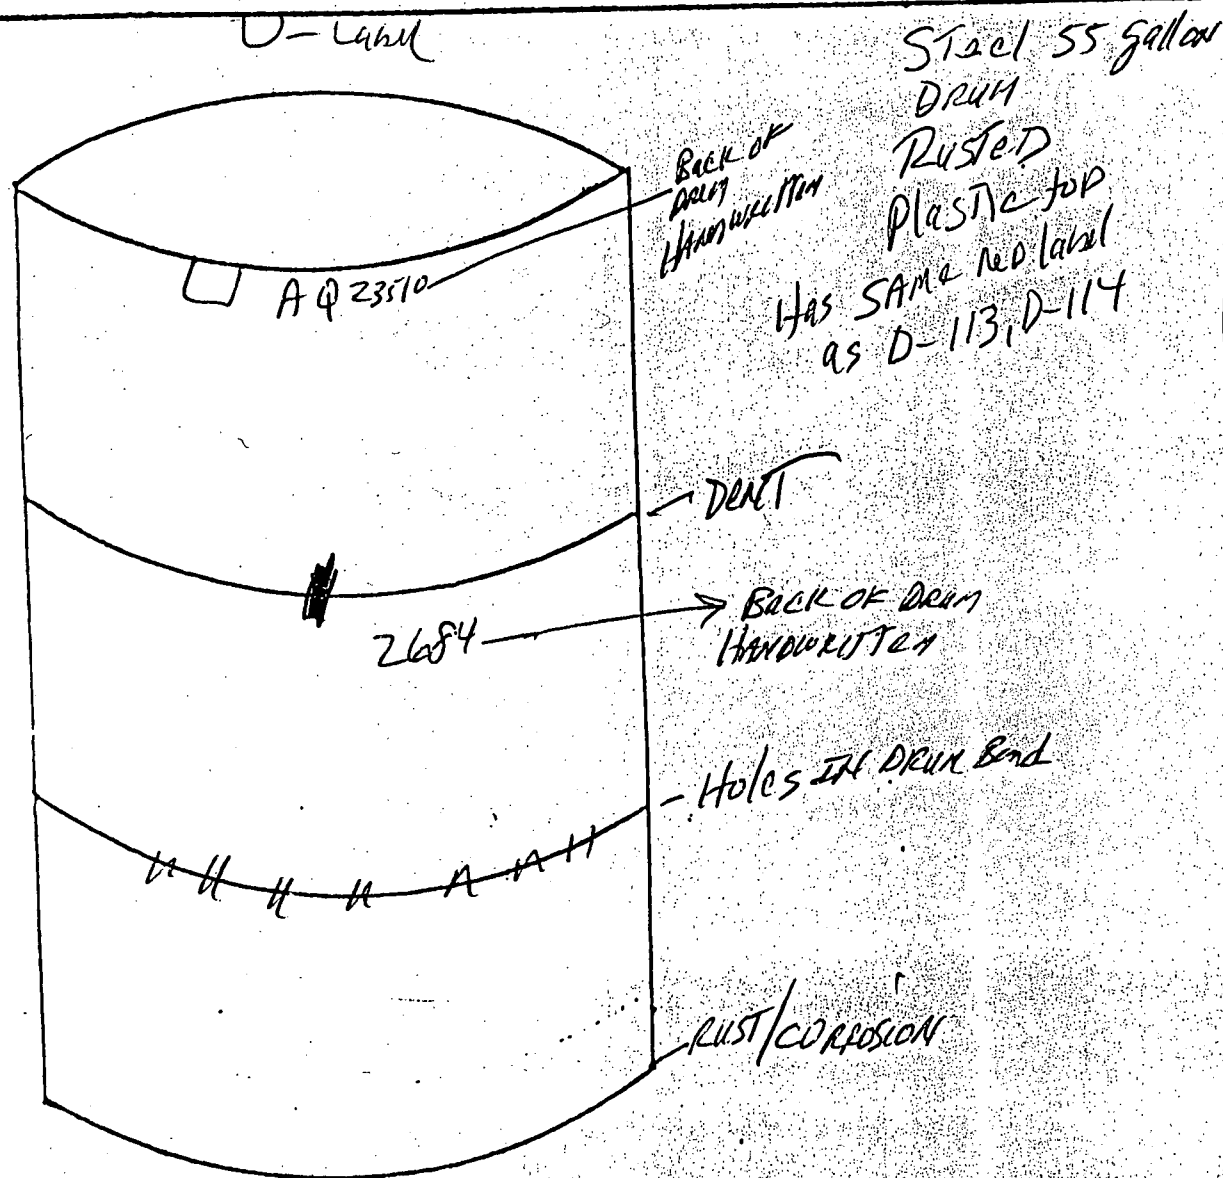 D-Label
Steel 55 gallon
DRUM
RUSTED
Plastic top
Has SAME RED label
as D-113, D-114
Back of
DRUM
HANDWRITTEN
AQ23510
DENT
2684
BACK OF DRUM
HANDWRITTEN
Holes IN DRUM Bend
RUST/CORROSION